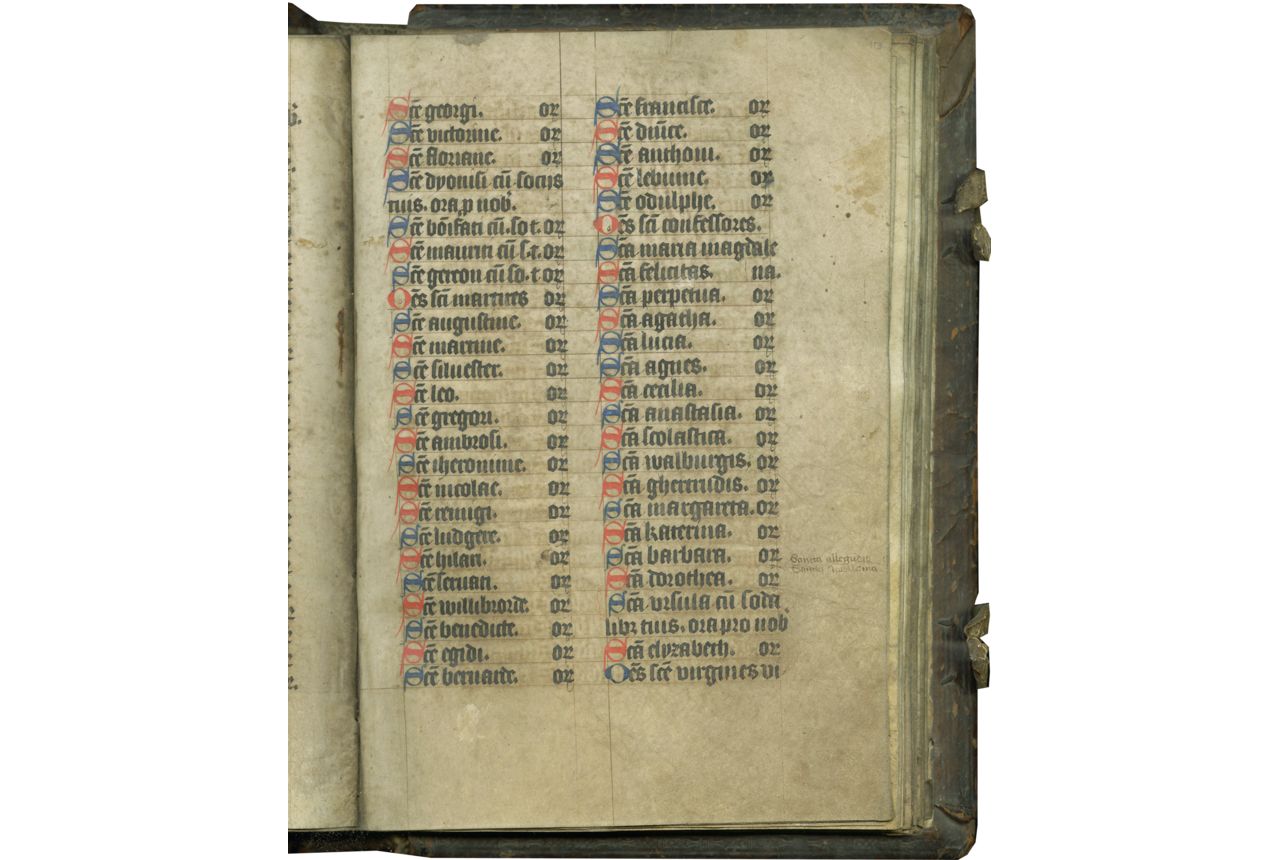 Sc̄e georgi. or
Sc̄e victorine. or
Sc̄e floriane. or
Sc̄e dyonisi cū sociis
tuis. ora p nob.
Sc̄e bōifati cū. so t. or
Sc̄e mauriti cū s. t. or
Sc̄e gereon cū so. t or
Oēs sc̄i martires or
Sc̄e augustine. or
Sc̄e martine. or
Sc̄e siluester. or
Sc̄e leo. or
Sc̄e gregori. or
Sc̄e ambrosi. or
Sc̄e iheronime. or
Sc̄e nicolae. or
Sc̄e remigi. or
Sc̄e ludgere. or
Sc̄e hilari. or
Sc̄e seruati. or
Sc̄e willibrorde. or
Sc̄e benedicte. or
Sc̄e egidi. or
Sc̄e bernarde. or
Sc̄e francisce. or
Sc̄e dnīce. or
Sc̄e anthoni. or
Sc̄e lebuine. or
Sc̄e odulphe. or
Oēs sc̄i confessores.
Sc̄a maria magdale
Sc̄a felicitas. na.
Sc̄a perpetua. or
Sc̄a agatha. or
Sc̄a lucia. or
Sc̄a agnes. or
Sc̄a cecilia. or
Sc̄a anastasia. or
Sc̄a scolastica. or
Sc̄a walburgis. or
Sc̄a ghertrudis. or
Sc̄a margareta. or
Sc̄a katerina. or
Sc̄a barbara. or
Sc̄a dorothea. or
Sc̄a vrsula cū soda
libz tuis. ora pro nob
Sc̄a elyzabeth. or
Oēs sc̄e virgines vi
Sancta